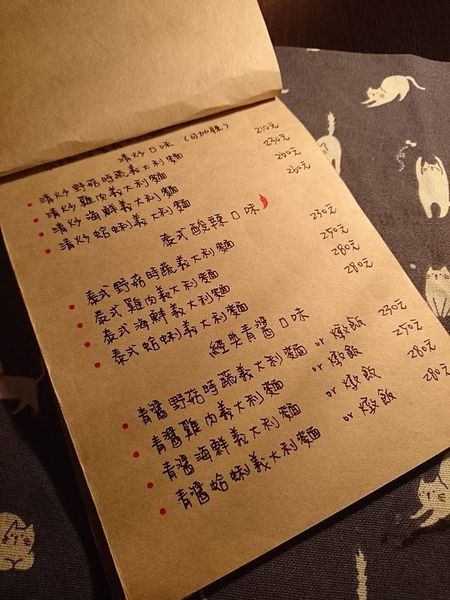 清炒口味 (可加辣)
清炒野菇時蔬義大利麵 210元
清炒雞肉義大利麵 230元
清炒海鮮義大利麵 260元
清炒蛤蜊義大利麵 260元
泰式酸辣口味
泰式野菇時蔬義大利麵 230元
泰式雞肉義大利麵 250元
泰式海鮮義大利麵 280元
泰式蛤蜊義大利麵 280元
經典青醬口味
青醬野菇時蔬義大利麵 or 燉飯 230元
青醬雞肉義大利麵 or 燉飯 250元
青醬海鮮義大利麵 or 燉飯 280元
青醬蛤蜊義大利麵 or 燉飯 280元